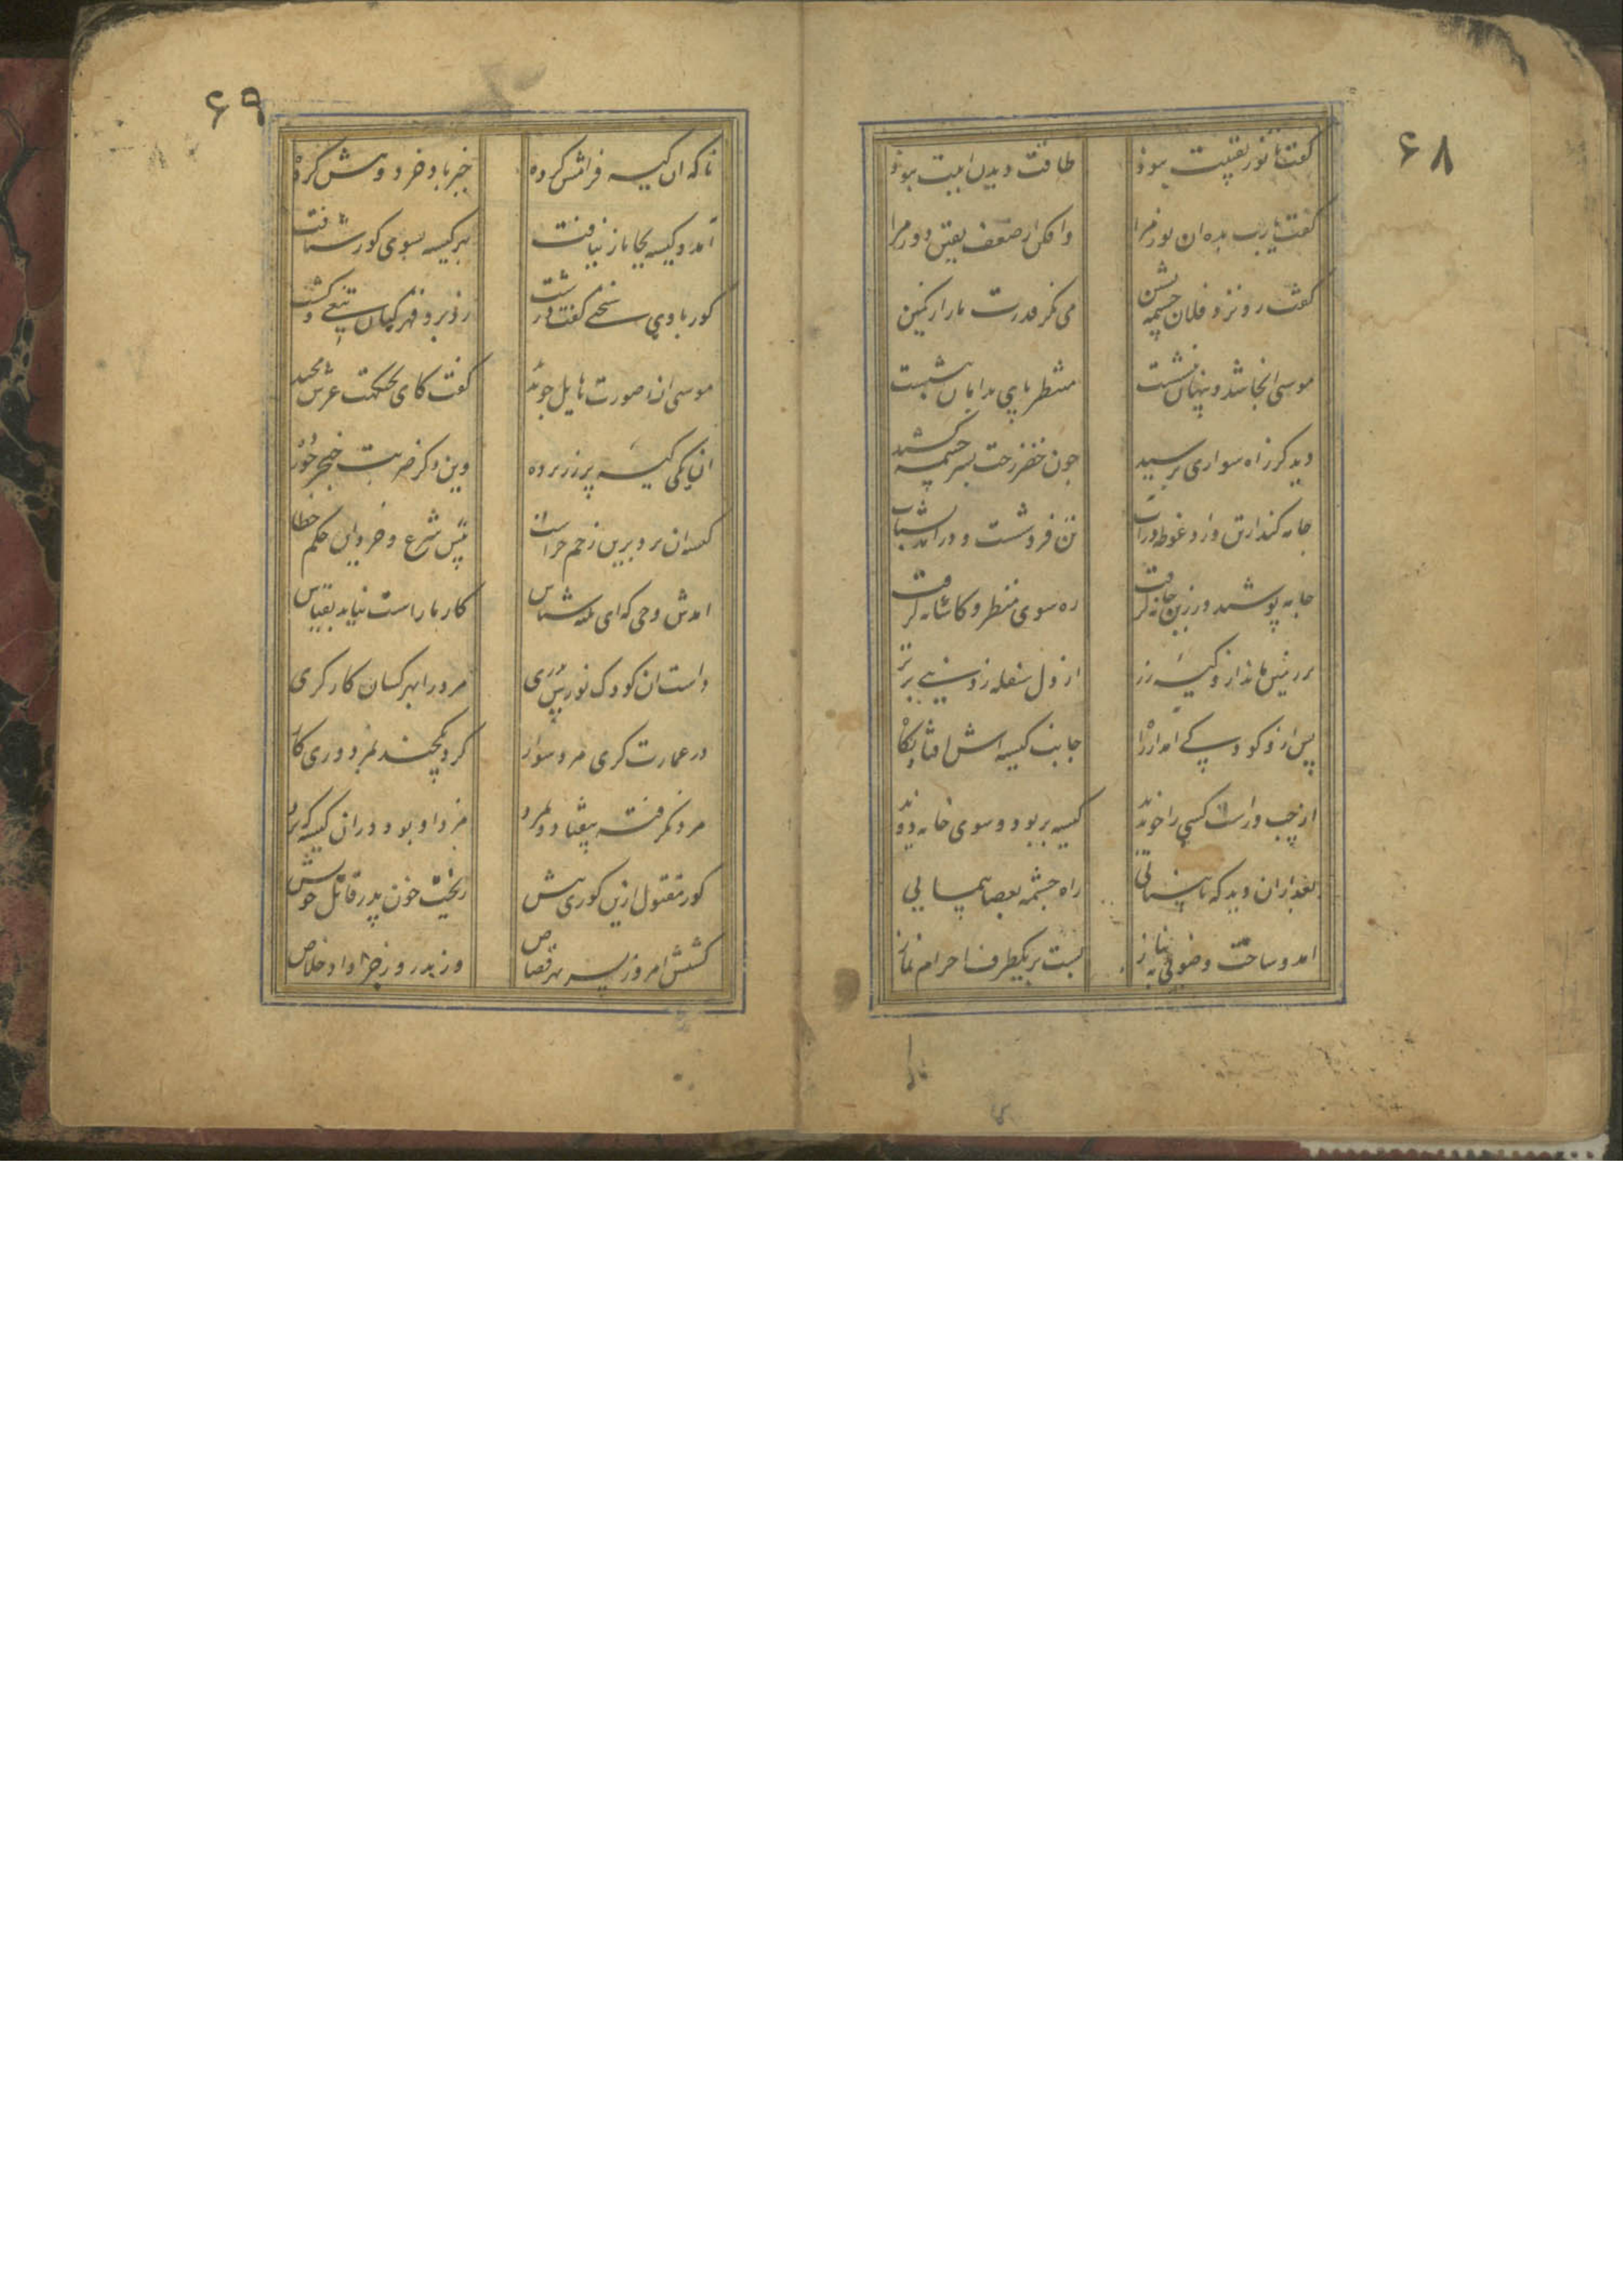 ۶۸
گفت تا نور یقینیت نبود طاقت دیدن اینت نبود
گفت یارب بده آن نور مرا وافکن از ضعف یقین دور مرا
گفت رو نزد فلان چشمه نشین می نگر قدرت ما را ز کمین
موسی آنجا شد و پنهان بنشست منتظر پای بدامان بنشست
دید کز راه سواری برسید چون خضر رخت بسر چشمه کشید
جامه کند از تن و زد غوطه در آب تن فرو شست و درآمد بشتاب
جامه پوشید و رزین جا نه گرفت ره سوی منظر و کاشانه گرفت
بر زمین ماند ازو کیسه زر از دل سفله ز دنیی پرتر
پس ازو کودکی آمد از راه جانب کیسه اش افتاد نگاه
از چپ و راست کسی را چو ندید کیسه بربود و سوی خانه دوید
بعد ازان دید که نابینایی راه چشمه بعصا پیمایی
آمد و ساخت وضویی به نیاز بست بر یکطرف احرام نماز
۶۹
ناگه آن کیسه فرامش کرده خیرباد خرد و هش کرده
آمد و کیسه بجا باز نیافت بهر کیسه بسوی کور شتافت
کور با وی سخنی گفت درشت زد برو قهرکنان تیغی و کشت
موسی آن صورت هایل چو بدید گفت کای تختگهت عرش مجید
آن یکی کیسه پر زر برده وین دگر ضربت خنجر خورده
کیسه آن برد برین زخم چراست پیش شرع و خرد این حکم خطاست
آمدش وحی که ای نکته شناس کار ما راست نیاید بقیاس
داشت آن کودک نورس پدری مزد را بهر کسان کارگری
در عمارت گری مرد سوار کرد یکچند بمزدوری کار
مزد نگرفته بیفتاد و بمرد مزد او بود در آن کیسه که برد
کور مقتول ازین کوری پیش ریخت خون پدر قاتل خویش
کشتش امروز پسر بهر قصاص وز پدر روز جزا داد خلاص